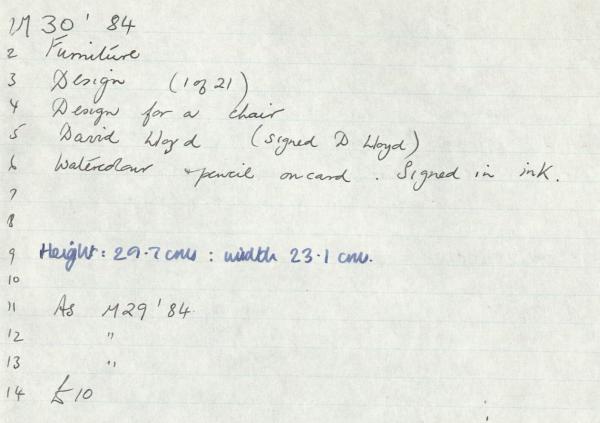 1 M 30' 84
2 Furniture
3 Design (1 of 21)
4 Design for a chair
5 David Lloyd (signed D Lloyd)
6 Watercolour + pencil on card. Signed in ink.
7
8
9 Height: 29.7 cms : width 23.1 cms.
10
11 As M29 '84
12 "
13 "
14 £10